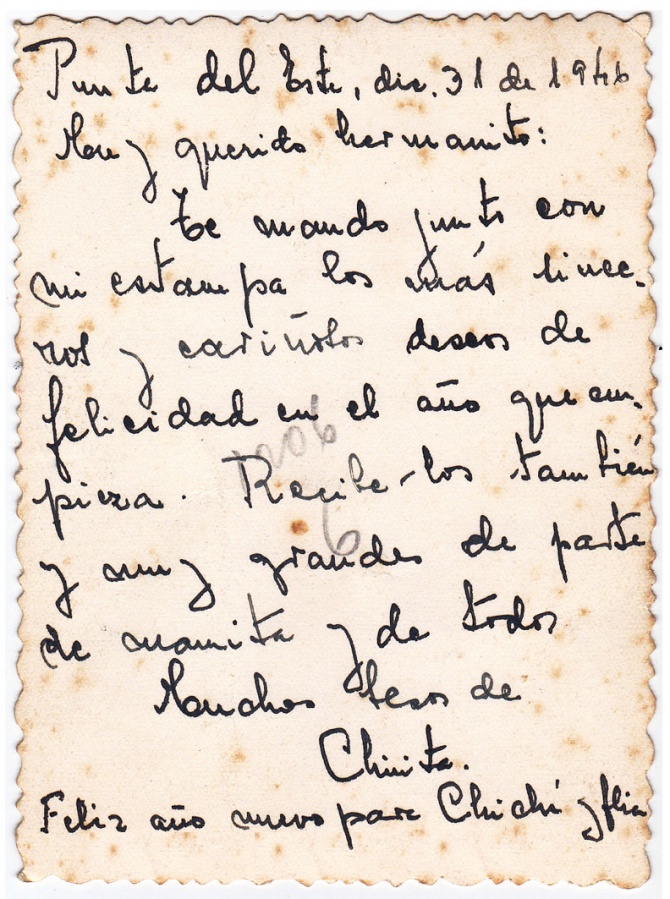 Punta del Este, dic. 31 de 1946
Muy querido hermanito:
Te mando junto con
mi estampa los más since-
ros y cariñosos deseos de
felicidad en el año que em-
pieza. Recibe-los también
y muy grandes de parte
de mamita y de todos
Muchos besos de
Chinita.
Feliz año nuevo para Chichí y flia